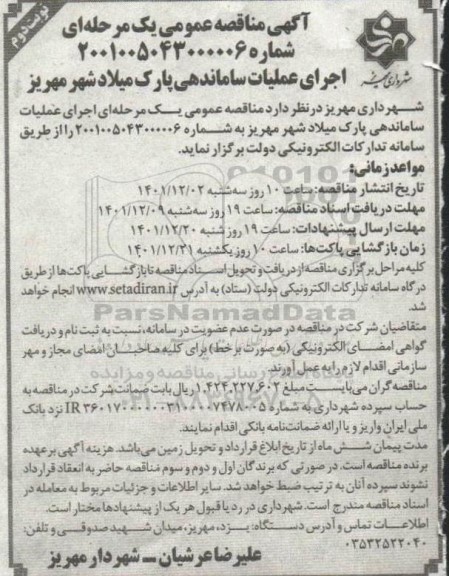 نوبت دوم
آگهی مناقصه عمومی یک مرحله‌ای
شماره ۲۰۰۱۰۰۵۰۴۳۰۰۰۰۰۶
اجرای عملیات ساماندهی پارک میلاد شهر مهریز
شهرداری مهریز
شهرداری مهریز در نظر دارد مناقصه عمومی یک مرحله‌ای اجرای عملیات
ساماندهی پارک میلاد شهر مهریز به شماره ۲۰۰۱۰۰۵۰۴۳۰۰۰۰۰۶ را از طریق
سامانه تدارکات الکترونیکی دولت برگزار نماید.
مواعد زمانی:
تاریخ انتشار مناقصه: ساعت ۱۰ روز سه‌شنبه ۱۴۰۱/۱۲/۰۲
مهلت دریافت اسناد مناقصه: ساعت ۱۹ روز سه‌شنبه ۱۴۰۱/۱۲/۰۹
مهلت ارسال پیشنهادات: ساعت ۱۹ روز شنبه ۱۴۰۱/۱۲/۲۰
زمان بازگشایی پاکت‌ها: ساعت ۱۰ روز یکشنبه ۱۴۰۱/۱۲/۲۱
کلیه مراحل برگزاری مناقصه از دریافت و تحویل اسناد مناقصه تا بازگشایی پاکت‌ها از طریق
درگاه سامانه تدارکات الکترونیکی دولت (ستاد) به آدرس www.setadiran.ir انجام خواهد
شد.
ParsNamadData
متقاضیان شرکت در مناقصه در صورت عدم عضویت در سامانه، نسبت به ثبت نام و دریافت
گواهی امضای الکترونیکی (به صورت برخط) برای کلیه صاحبان امضای مجاز و مهر
سازمانی اقدام لازم را به عمل آورند.
مناقصه گران می‌بایست مبلغ ۱.۴۲۴.۲۲۷.۶۰۲ ریال بابت ضمانت شرکت در مناقصه به
حساب سپرده شهرداری به شماره IR نزد بانک
ملی ایران واریز و یا ارائه ضمانت‌نامه بانکی اقدام نمایند.
مدت پیمان شش ماه از تاریخ ابلاغ قرارداد و تحویل زمین می‌باشد. هزینه آگهی بر عهده
برنده مناقصه است. در صورتی که برندگان اول و دوم و سوم مناقصه حاضر به انعقاد قرارداد
نشوند سپرده آنان به ترتیب ضبط خواهد شد. سایر اطلاعات و جزئیات مربوط به معامله در
اسناد مناقصه مندرج است. شهرداری در رد یا قبول هر یک از پیشنهادها مختار است.
اطلاعات تماس و آدرس دستگاه: یزد، مهریز، میدان شهید صدوقی و تلفن:
۰۳۵۳۲۵۲۲۰۴۰
علیرضا عرشیان – شهردار مهریز